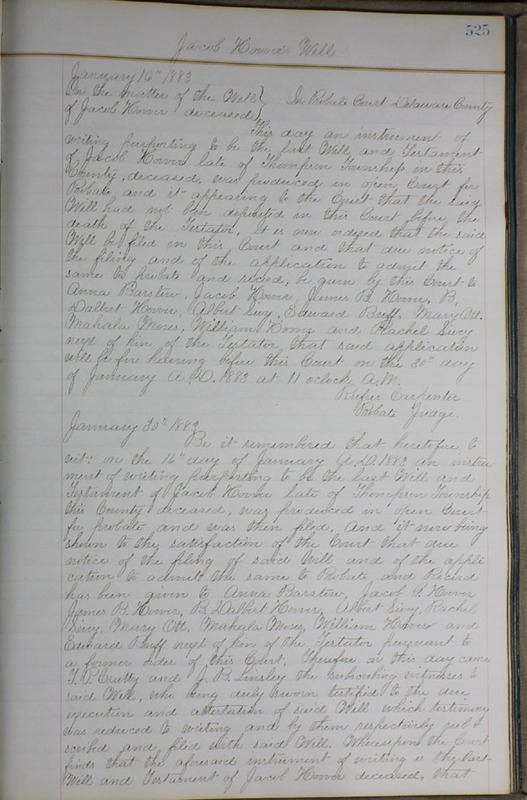 525
Jacob Hoover's Will
January 16" 1883
In the matter of the Will } In Probate Court Delaware County
of Jacob Hoover deceased }
This day an instrument of
writing purporting to be the last Will and Testament
of Jacob Hoover late of Thompson Township in this
County, deceased, was produced in open Court for
Probate, and it appearing to the Court that the said
Will had not been deposited in this Court before the
death of the Testator, It is now ordered that the said
Will be filed in this Court and that due notice of
the filing and of the application to admit the
same to probate and record, be given by this Court to
Anna Barstow, Jacob Hoover, James B. Hoover, B.
Dalbert Hoover, Albert Sivy, Edward Buff, Mary Ott.
Mahala Moses, William Hoover and Rachel Sivy
next of kin of the Testator that said application
will be for hearing before this Court on the 30" day
of January A.D. 1883 at 11 oclock A.M.
Rufus Carpenter
Probate Judge.
January 30" 1883
Be it remembered that heretofore to
wit: on the 16" day of January A.D. 1883 an instru
ment of writing purporting to be the last Will and
Testament of Jacob Hoover late of Thompson Township
this County deceased, was produced in open Court
for probate and was then filed, And it now being
shown to the satisfaction of the Court that due
notice of the filing of said Will and of the appli
cation to admit the same to Probate and Record
has been given to Anna Barstow, Jacob Hoover
James B. Hoover, B. Dalbert Hoover, Albert Sivy, Rachel
Sivy, Mary Ott, Mahala Moses, William Hoover and
Edward Buff next of kin of the Testator pursuant to
a former order of this Court, Therefore on this day came
and J. B. Linsley the subscribing witnesses to
said Will, who being duly sworn testified to the due
execution and attestation of said Will which testimony
was reduced to writing and by them respectively sub
scribed and filed with said Will. Whereupon the Court
finds that the aforesaid instrument of writing is the last
Will and Testament of Jacob Hoover deceased, that